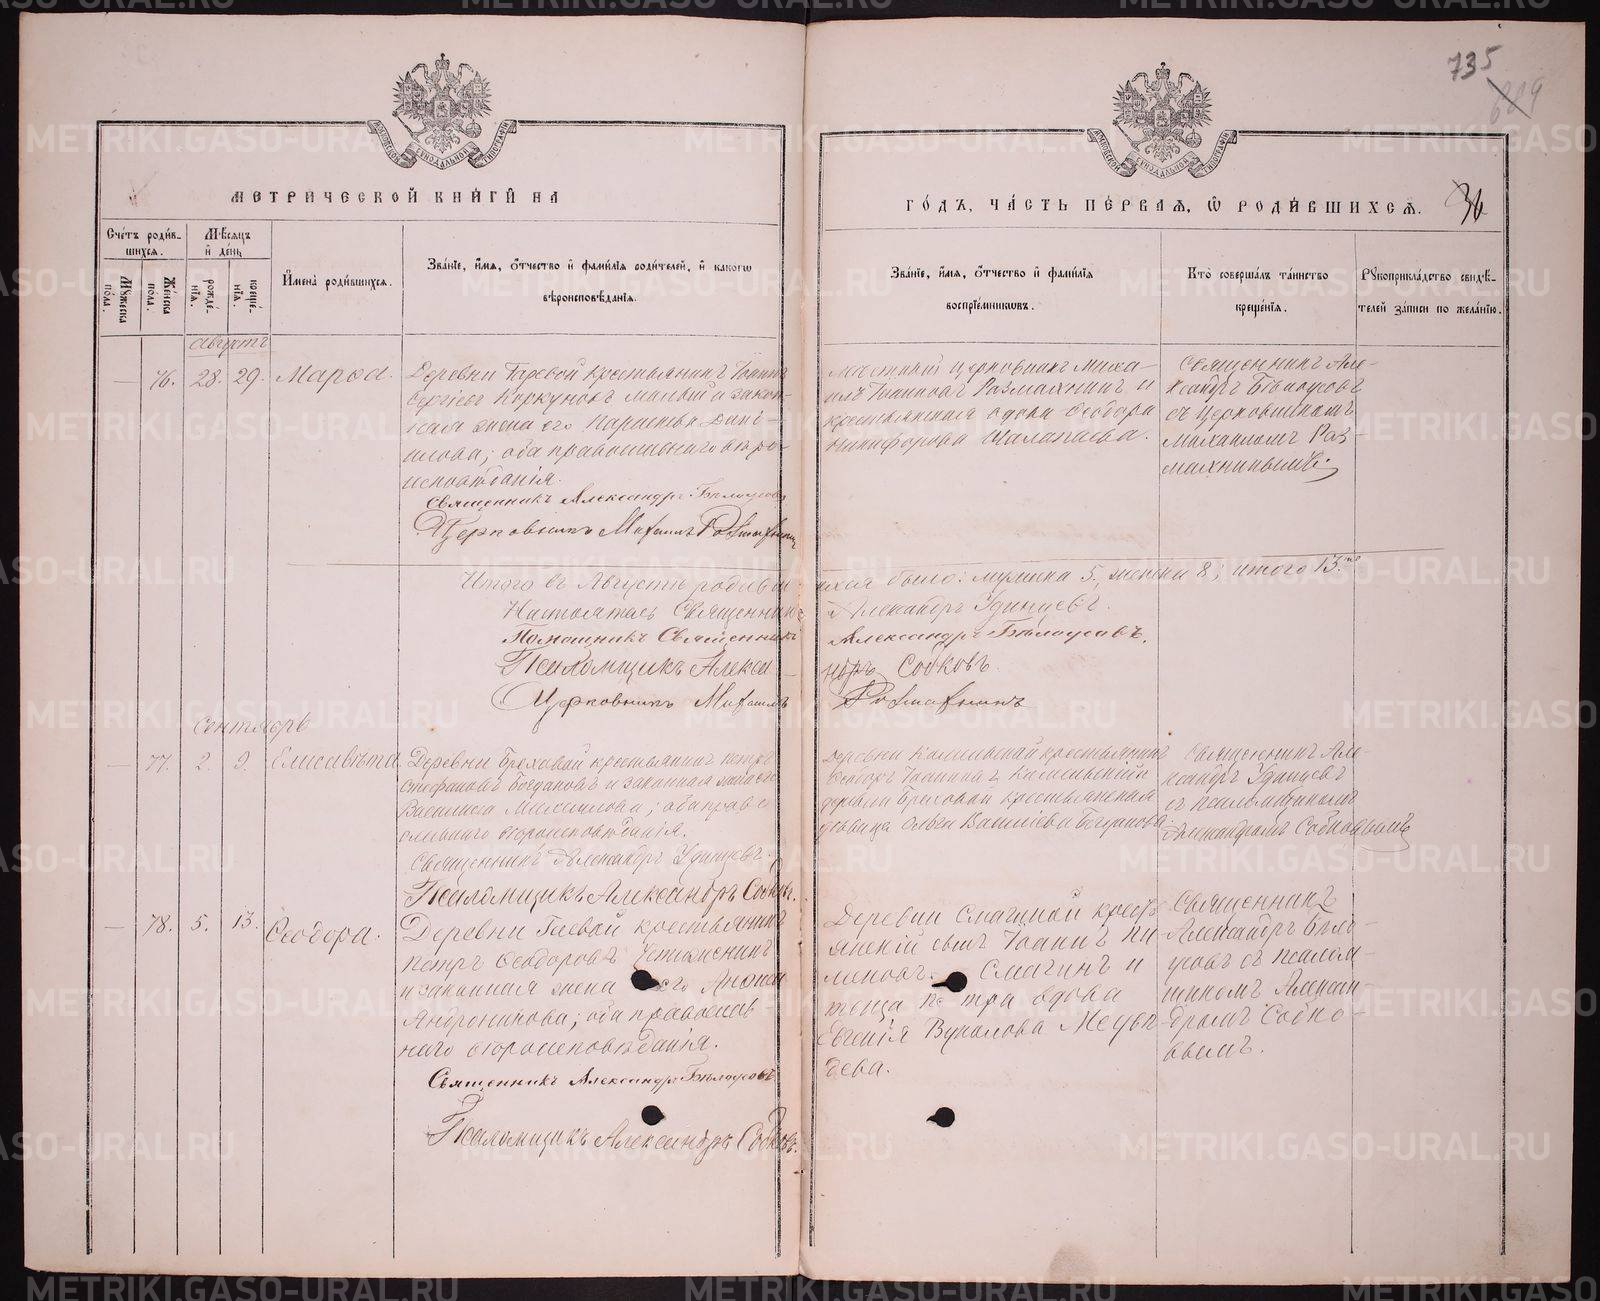 735
689
МОСКОВСКОЙ СѴНОДАЛЬНОЙ ТИПОГРАФІИ
МОСКОВСКОЙ СѴНОДАЛЬНОЙ ТИПОГРАФІИ
МЕТРИЧЕСКОЙ КНИГИ НА
ГОДЪ, ЧАСТЬ ПЕРВАѦ, Ѡ РОДИВШИХСѦ.
36
Счетъ родив-
шихся.
Мѣсяцъ
и день
Мужеска пола.
Женска пола.
рожде-
нія.
креще-
нія.
Имена родившихся.
Званіе, имя, отчество и фамилія родителей, и какого
вѣроисповѣданія.
Званіе, имя, отчество и фамилія
воспріемниковъ.
Кто совершалъ таинство
крещенія.
Рукоприкладство свидѣ-
телей записи по желанію.
Августъ
— 76. 28. 29. Марѳа.
Деревни Гаревой крестьянинъ Іоаннъ
Сергіевъ Коркунокъ малый и закон-
ная жена его Дани-
лова; оба православнаго вѣро-
исповѣданія.
Священникъ Александръ Бѣлоусовъ
Церковникъ Михаилъ Размахнинъ
мѣстный церковникъ Миха-
илъ Іоанновъ Размахнинъ и
крестьянская вдова Ѳеодора
Никифорова
Священникъ Але-
ксандръ Бѣлоусовъ
съ церковникомъ
Михаиломъ Раз-
махнинымъ.
Итого въ Августѣ родивш-
ихся было: мужска 5, женска 8; итого 13.
Настоятель Священникъ
Александръ Удинцевъ.
Помощникъ Священникъ
Александръ Бѣлоусовъ.
Псаломщикъ Алекса-
ндръ Собковъ.
Церковникъ Михаилъ
Размахнинъ
Сентябрь
— 77. 2. 9. Елисавѣта
Деревни Бреховой крестьянинъ Петръ
Стефановъ Богдановъ и законная жена его
Василиса Михаилова; оба право-
славнаго вѣроисповѣданія.
Священникъ Александръ Удинцевъ.
Псаломщикъ Александръ Собковъ.
деревни крестьянинъ
Ѳеодоръ Іоанновъ и
деревни Бреховой крестьянская
дѣвица Васильева Богданова.
Священникъ Але-
ксандръ Удинцевъ
съ псаломщикомъ
Александромъ Собковымъ
— 78. 5. 13. Ѳеодора.
Деревни Гаевой крестьянинъ
Петръ Ѳеодоровъ
и законная жена его
Андроникова; оба православ-
наго вѣроисповѣданія.
Священникъ Александръ Бѣлоусовъ
Псаломщикъ Александръ Собковъ.
Деревни Смагиной кресть-
янскій сынъ Іоаннъ Пи-
меновъ Смагинъ и
теща Петра вдова
Евгенія Вуколова Медвѣ-
дева.
Священникъ
Александръ Бѣло-
усовъ съ псалом-
щикомъ Алексан-
дромъ Собко-
вымъ.
METRIKI.GASO-URAL.RU